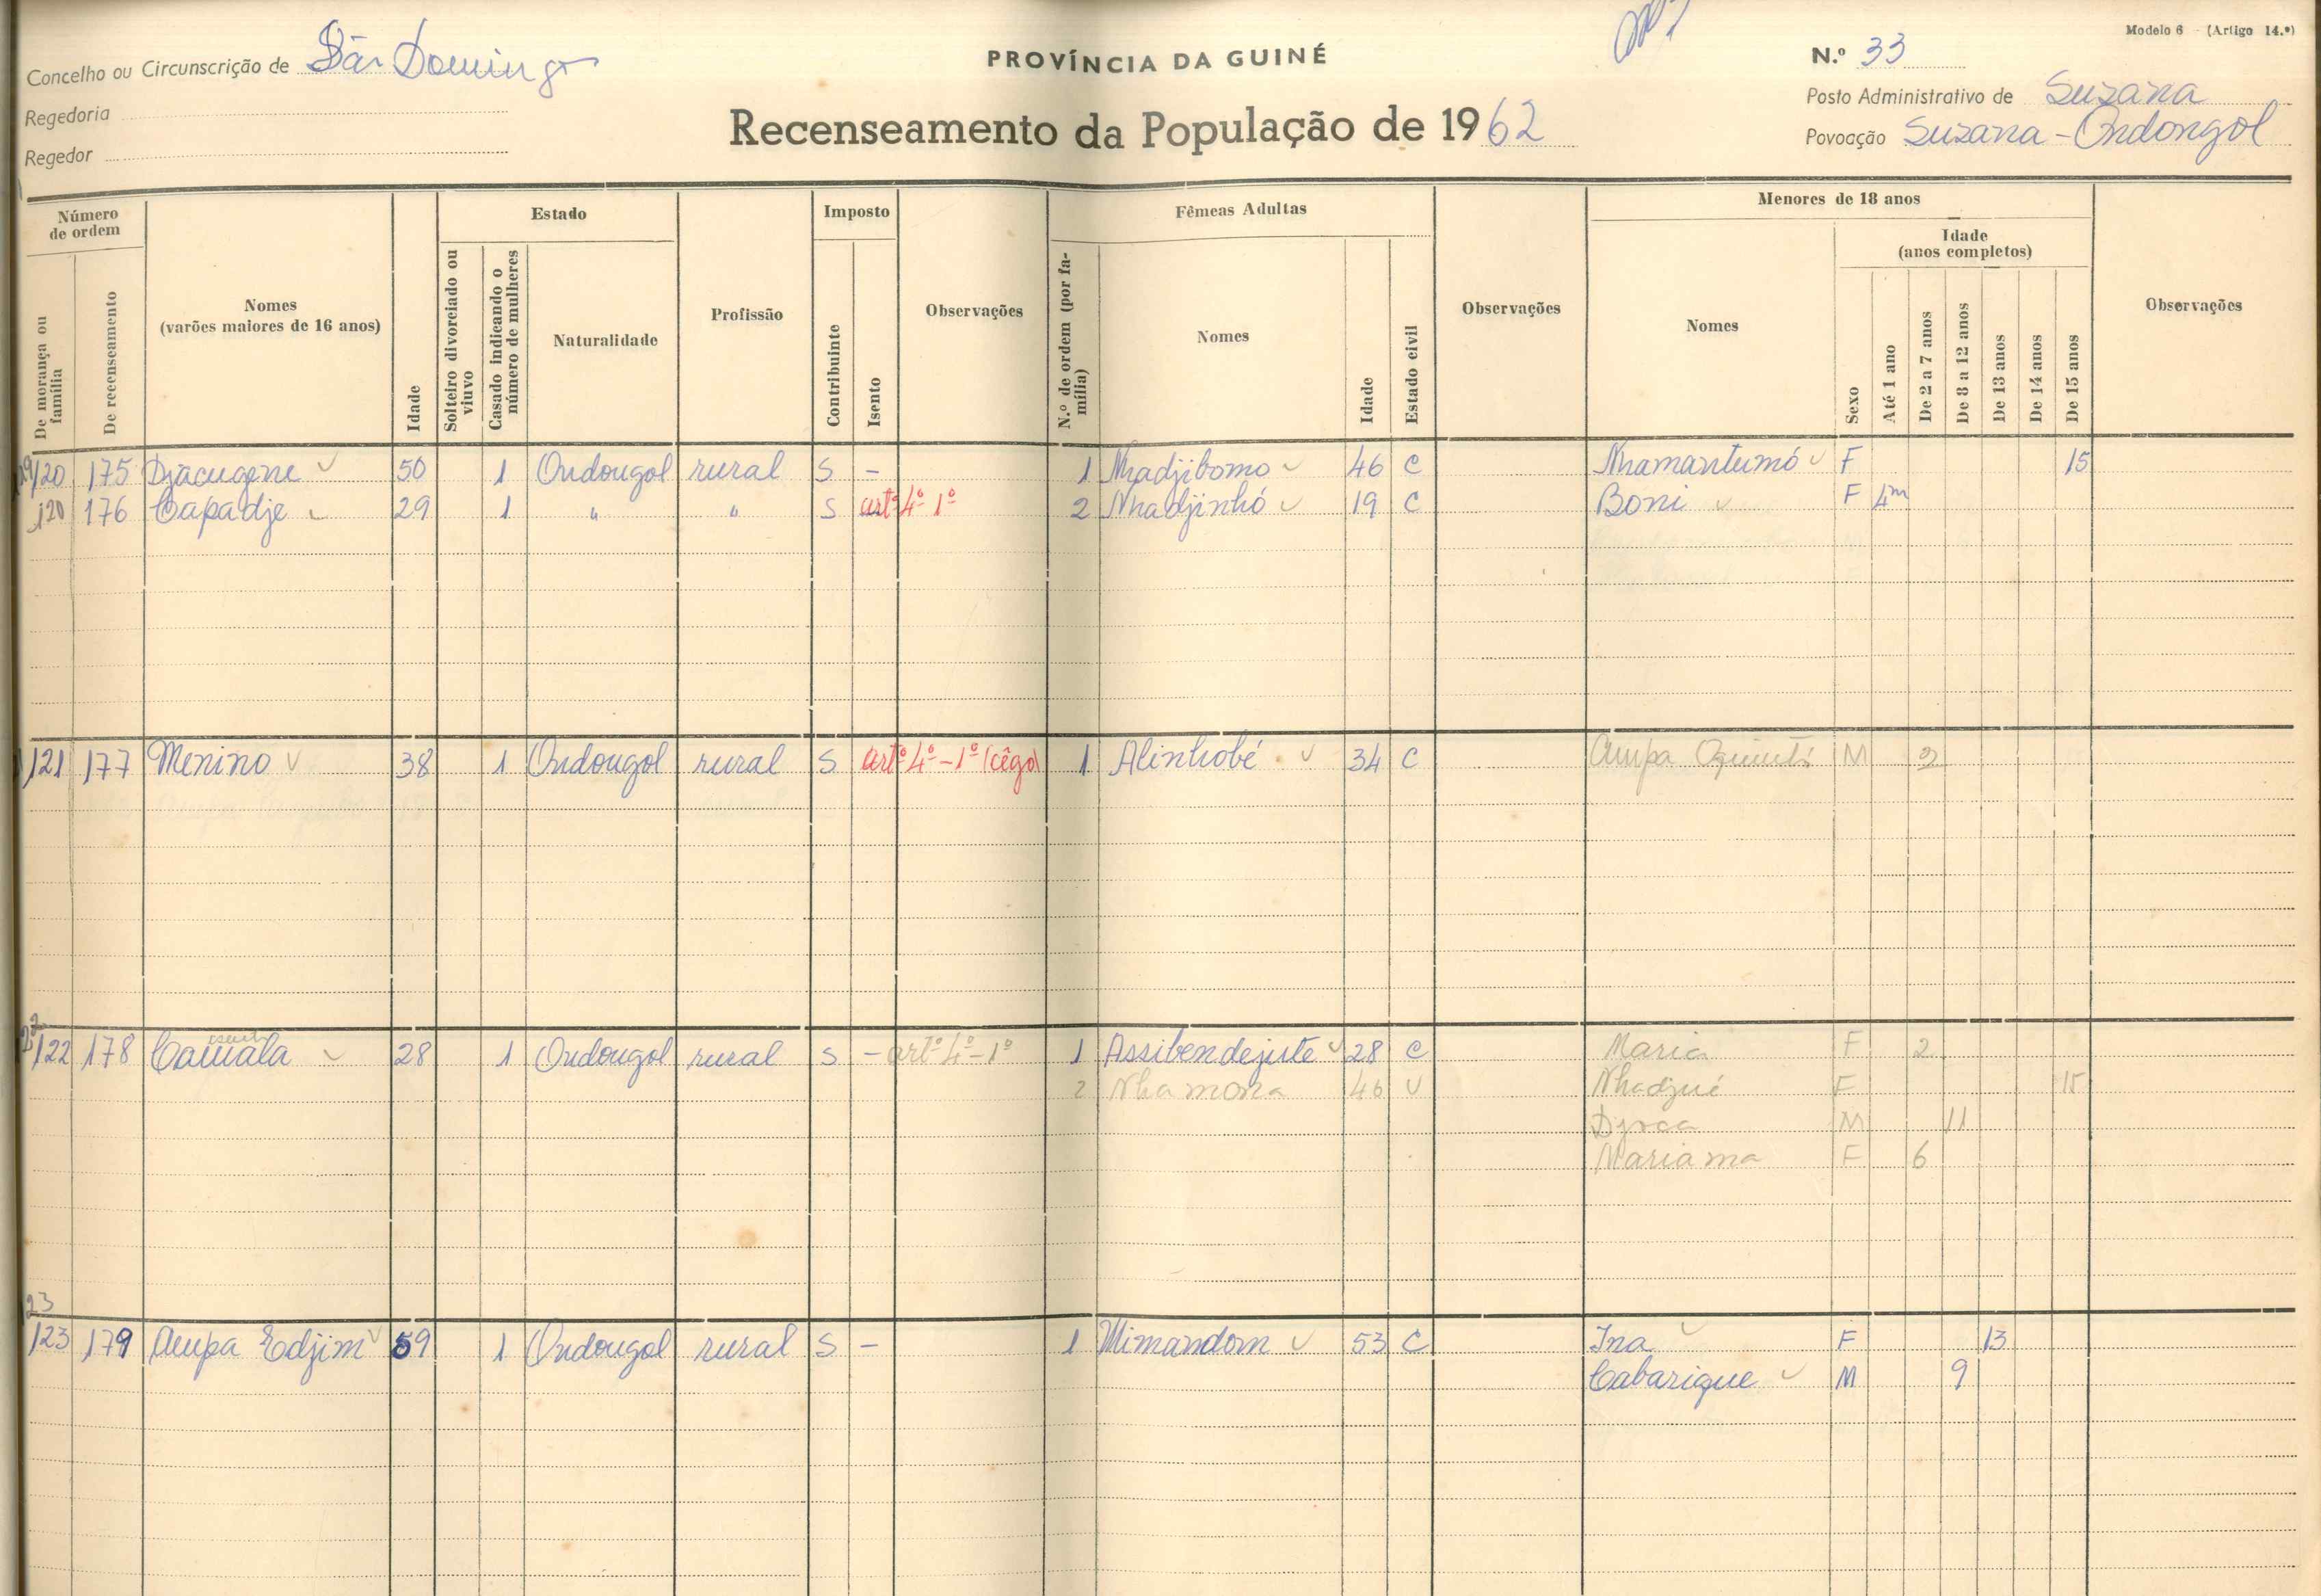 Modelo 6 - (Artigo 14.º)
Concelho ou Circunscrição de São Domingos
PROVÍNCIA DA GUINÉ
N.º 33
Regedoria
Recenseamento da População de 1962
Posto Administrativo de Suzana
Regedor
Povoação Suzana-Ondongol
Número de ordem
De morança ou família
De recenseamento
Nomes
(varões maiores de 16 anos)
Idade
Estado
Solteiro divorciado ou viuvo
Casado indicando o número de mulheres
Naturalidade
Profissão
Imposto
Contribuinte
Isento
Observações
Fêmeas Adultas
N.º de ordem (por família)
Nomes
Idade
Estado civil
Observações
Menores de 18 anos
Nomes
Sexo
Idade
(anos completos)
Até 1 ano
De 2 a 7 anos
De 8 a 12 anos
De 13 anos
De 14 anos
De 15 anos
Observações
120 175 Djacugene 50 1 Ondougol rural S - 1 Nhadjibomo 46 C Nhamantumó F 15
120 176 Capadje 29 1 " " S artº 4º 1º 2 Nhadjinhó 19 C Boni F 4m
121 177 Menino 38 1 Ondougol rural S artº 4º-1º (cêgo) 1 Alinhobé 34 C Ampa M 2
122 178 Camala 28 1 Ondougol rural S - artº 4º-1º 1 Assibendejute 28 C Maria F 2
2 Nhamona 46 V Nhadjué F 15
M 11
Mariama F 6
123
123 179 Ampa Edjim 59 1 Ondougol rural S - 1 Mimandom 53 C Ina F 13
Cabarique M 9